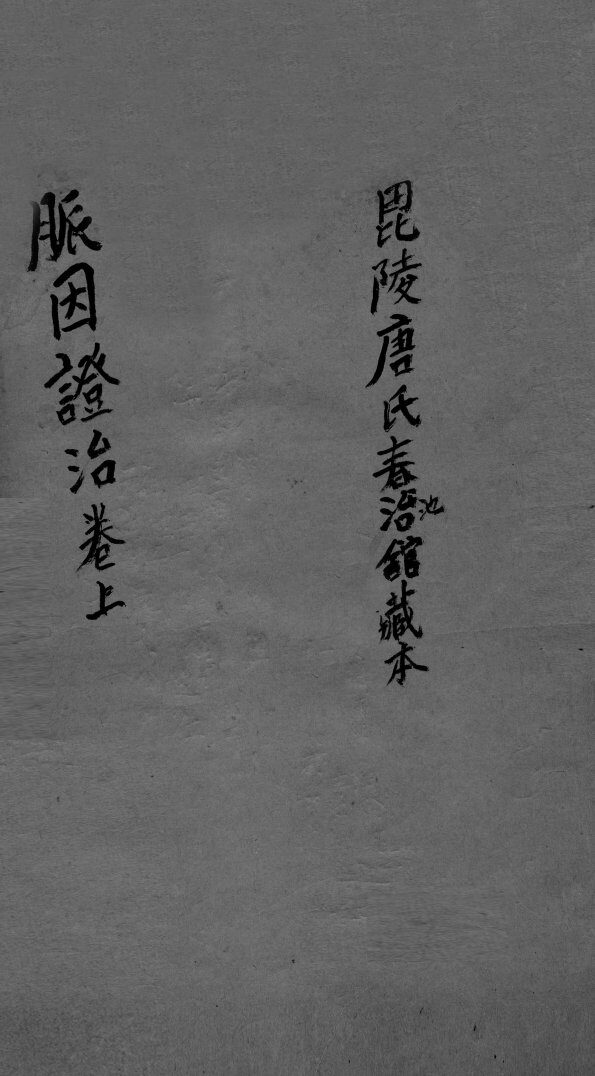 毘陵唐氏春治池館藏本
脈因證治卷上